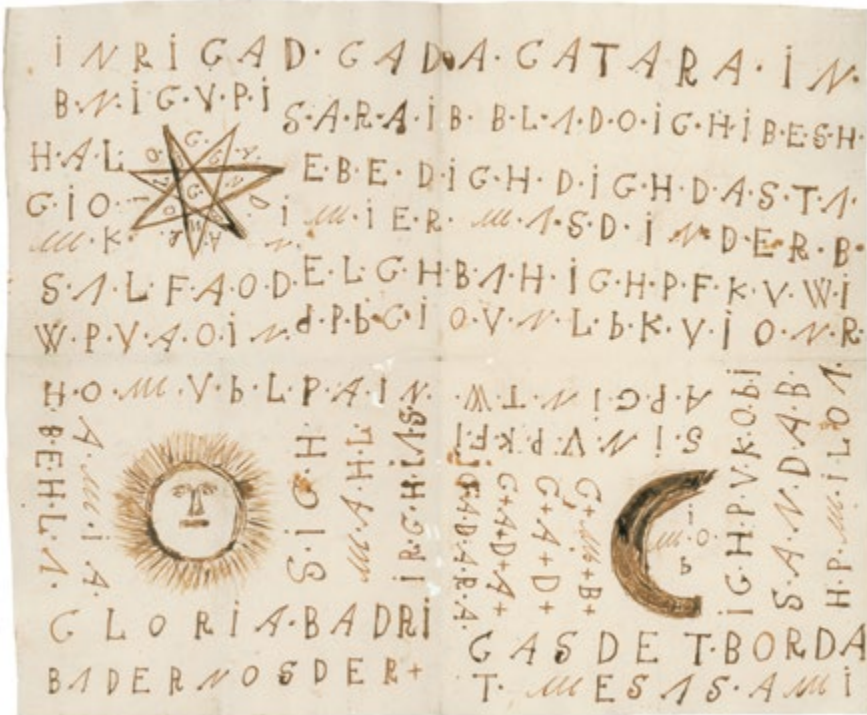 İNRİGAD·GADA·GATARA·İN·
B·N·İG·V·P·İ
S·A·R·A·İB·B·L·A·D·O·İGHİBESH·
HAL
EBE·DİGH·DİGHDAS·T·A·
GİO·
İ M·İER·M·A·S·D·İ·N·DER·B·
M·K·
S·A·L·F·A·O·D·E·L·G·H·B·A·H·İGH·P·F·K·V·W·İ
W·P·V·A·O·İN·d·P·b·G·İ O·V·N·L·b·K·V·İ O·N·R
H·O·M·V·b·L·P·A·İN·
A·P·G·İ·N·T·W·
S·İ·N·V·P·K·F·İ
B·E·H·L·A·
A·M·İ·A·
S·İ·G·H
M·A·H·L
İR·G·H·L·A·S
GADARA·
G+A+D+A+
G+A+D+
G+M+B+
İ
M·O·
b
İ·G·H·P·V·K·O·b·İ
S·A·N·D·A·B·
H·P·M·İLOA·
GLORİA·BADRİ
GASDET·BORDA
BADERNOSDER+
T·MESAS·AMİ